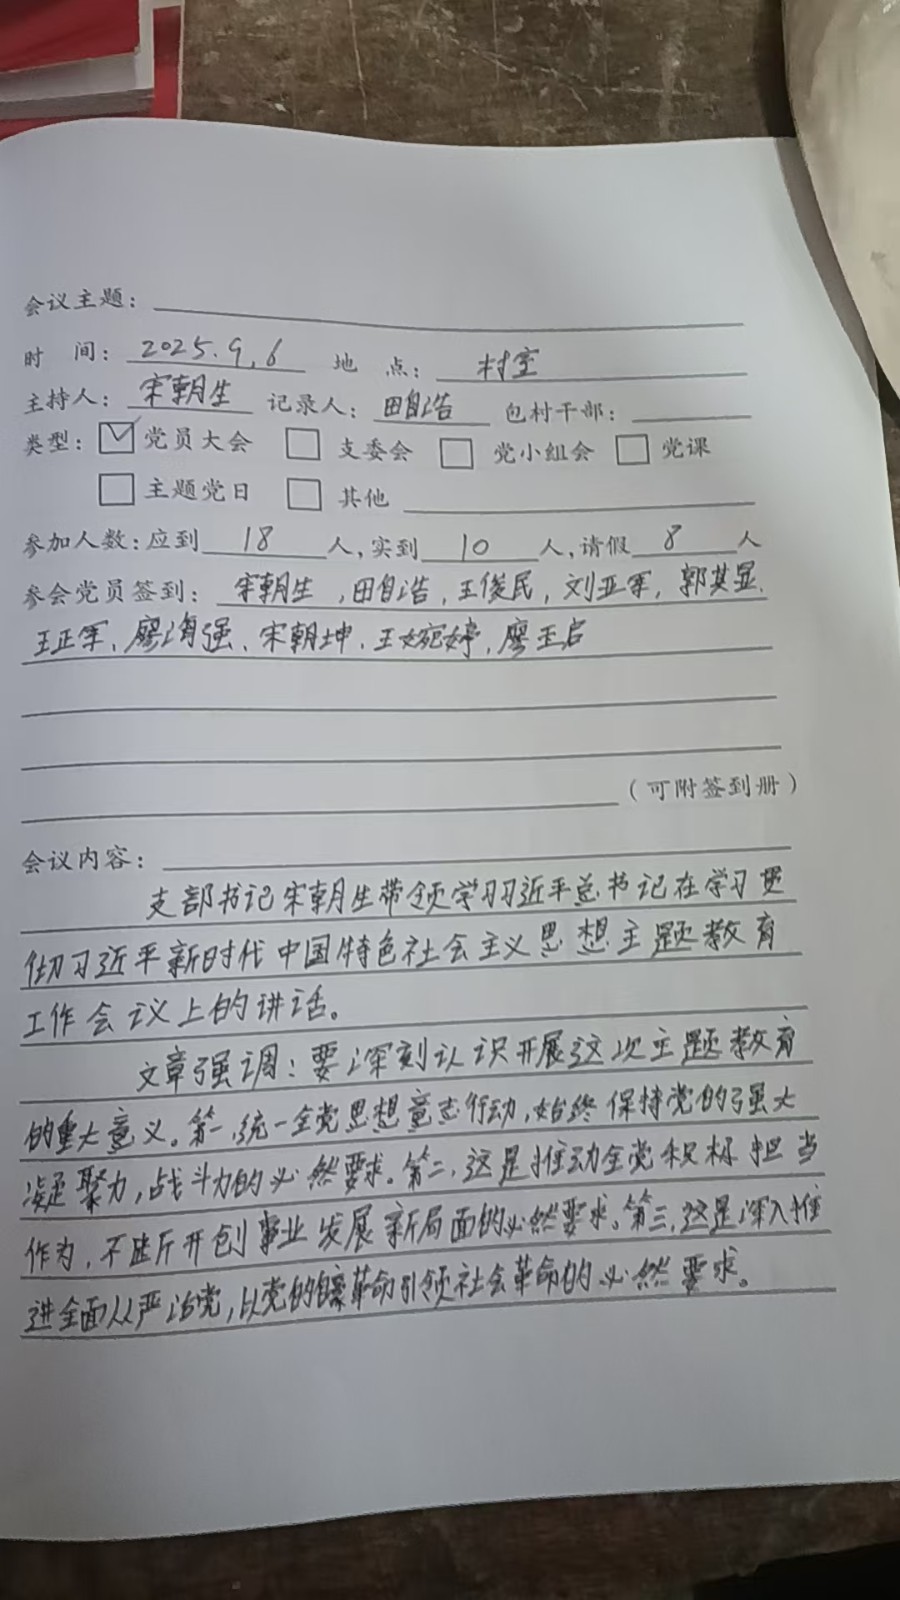 会议主题：
时 间：2025.9.6 地 点：村室
主持人：宋朝生 记录人：田自浩 包村干部：
类型：☑党员大会 □支委会 □党小组会 □党课
□主题党日 □其他
参加人数：应到 18 人，实到 10 人，请假 8 人
参会党员签到：宋朝生，田自浩，王俊民，刘亚军，郭其显、
王正军、廖海强、宋朝坤、王婉婷、廖玉启
（可附签到册）
会议内容：
支部书记宋朝生带领学习习近平总书记在学习贯
彻习近平新时代中国特色社会主义思想主题教育
工作会议上的讲话。
文章强调：要深刻认识开展这次主题教育
的重大意义。第一，统一全党思想意志行动，始终保持党的强大
凝聚力，战斗力的必然要求。第二，这是推动全党积极担当
作为，不断开创事业发展新局面的必然要求。第三，这是深入推
进全面从严治党，以党的自我革命引领社会革命的必然要求。